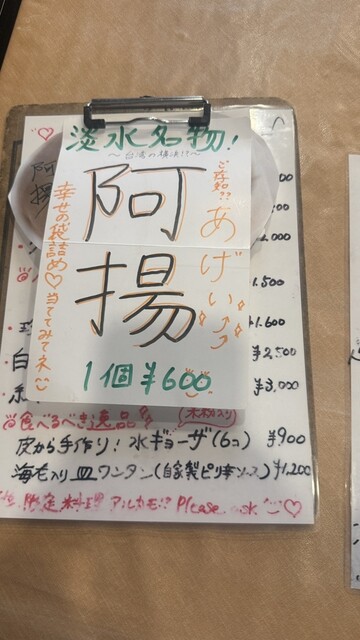 淡水名物!
～台湾の横浜!?～
阿揚
ご存知??
あげい
幸せの袋詰め♡当ててみてネ
1個¥600
¥1.600
¥2,500
¥3,000
食べるべき逸品
皮から手作り! 水ギョーザ(6コ) ¥900
海老入り皿ワンタン(自家製ピリ辛ソース) ¥1,200
限定料理 アルカモ!? Please ask